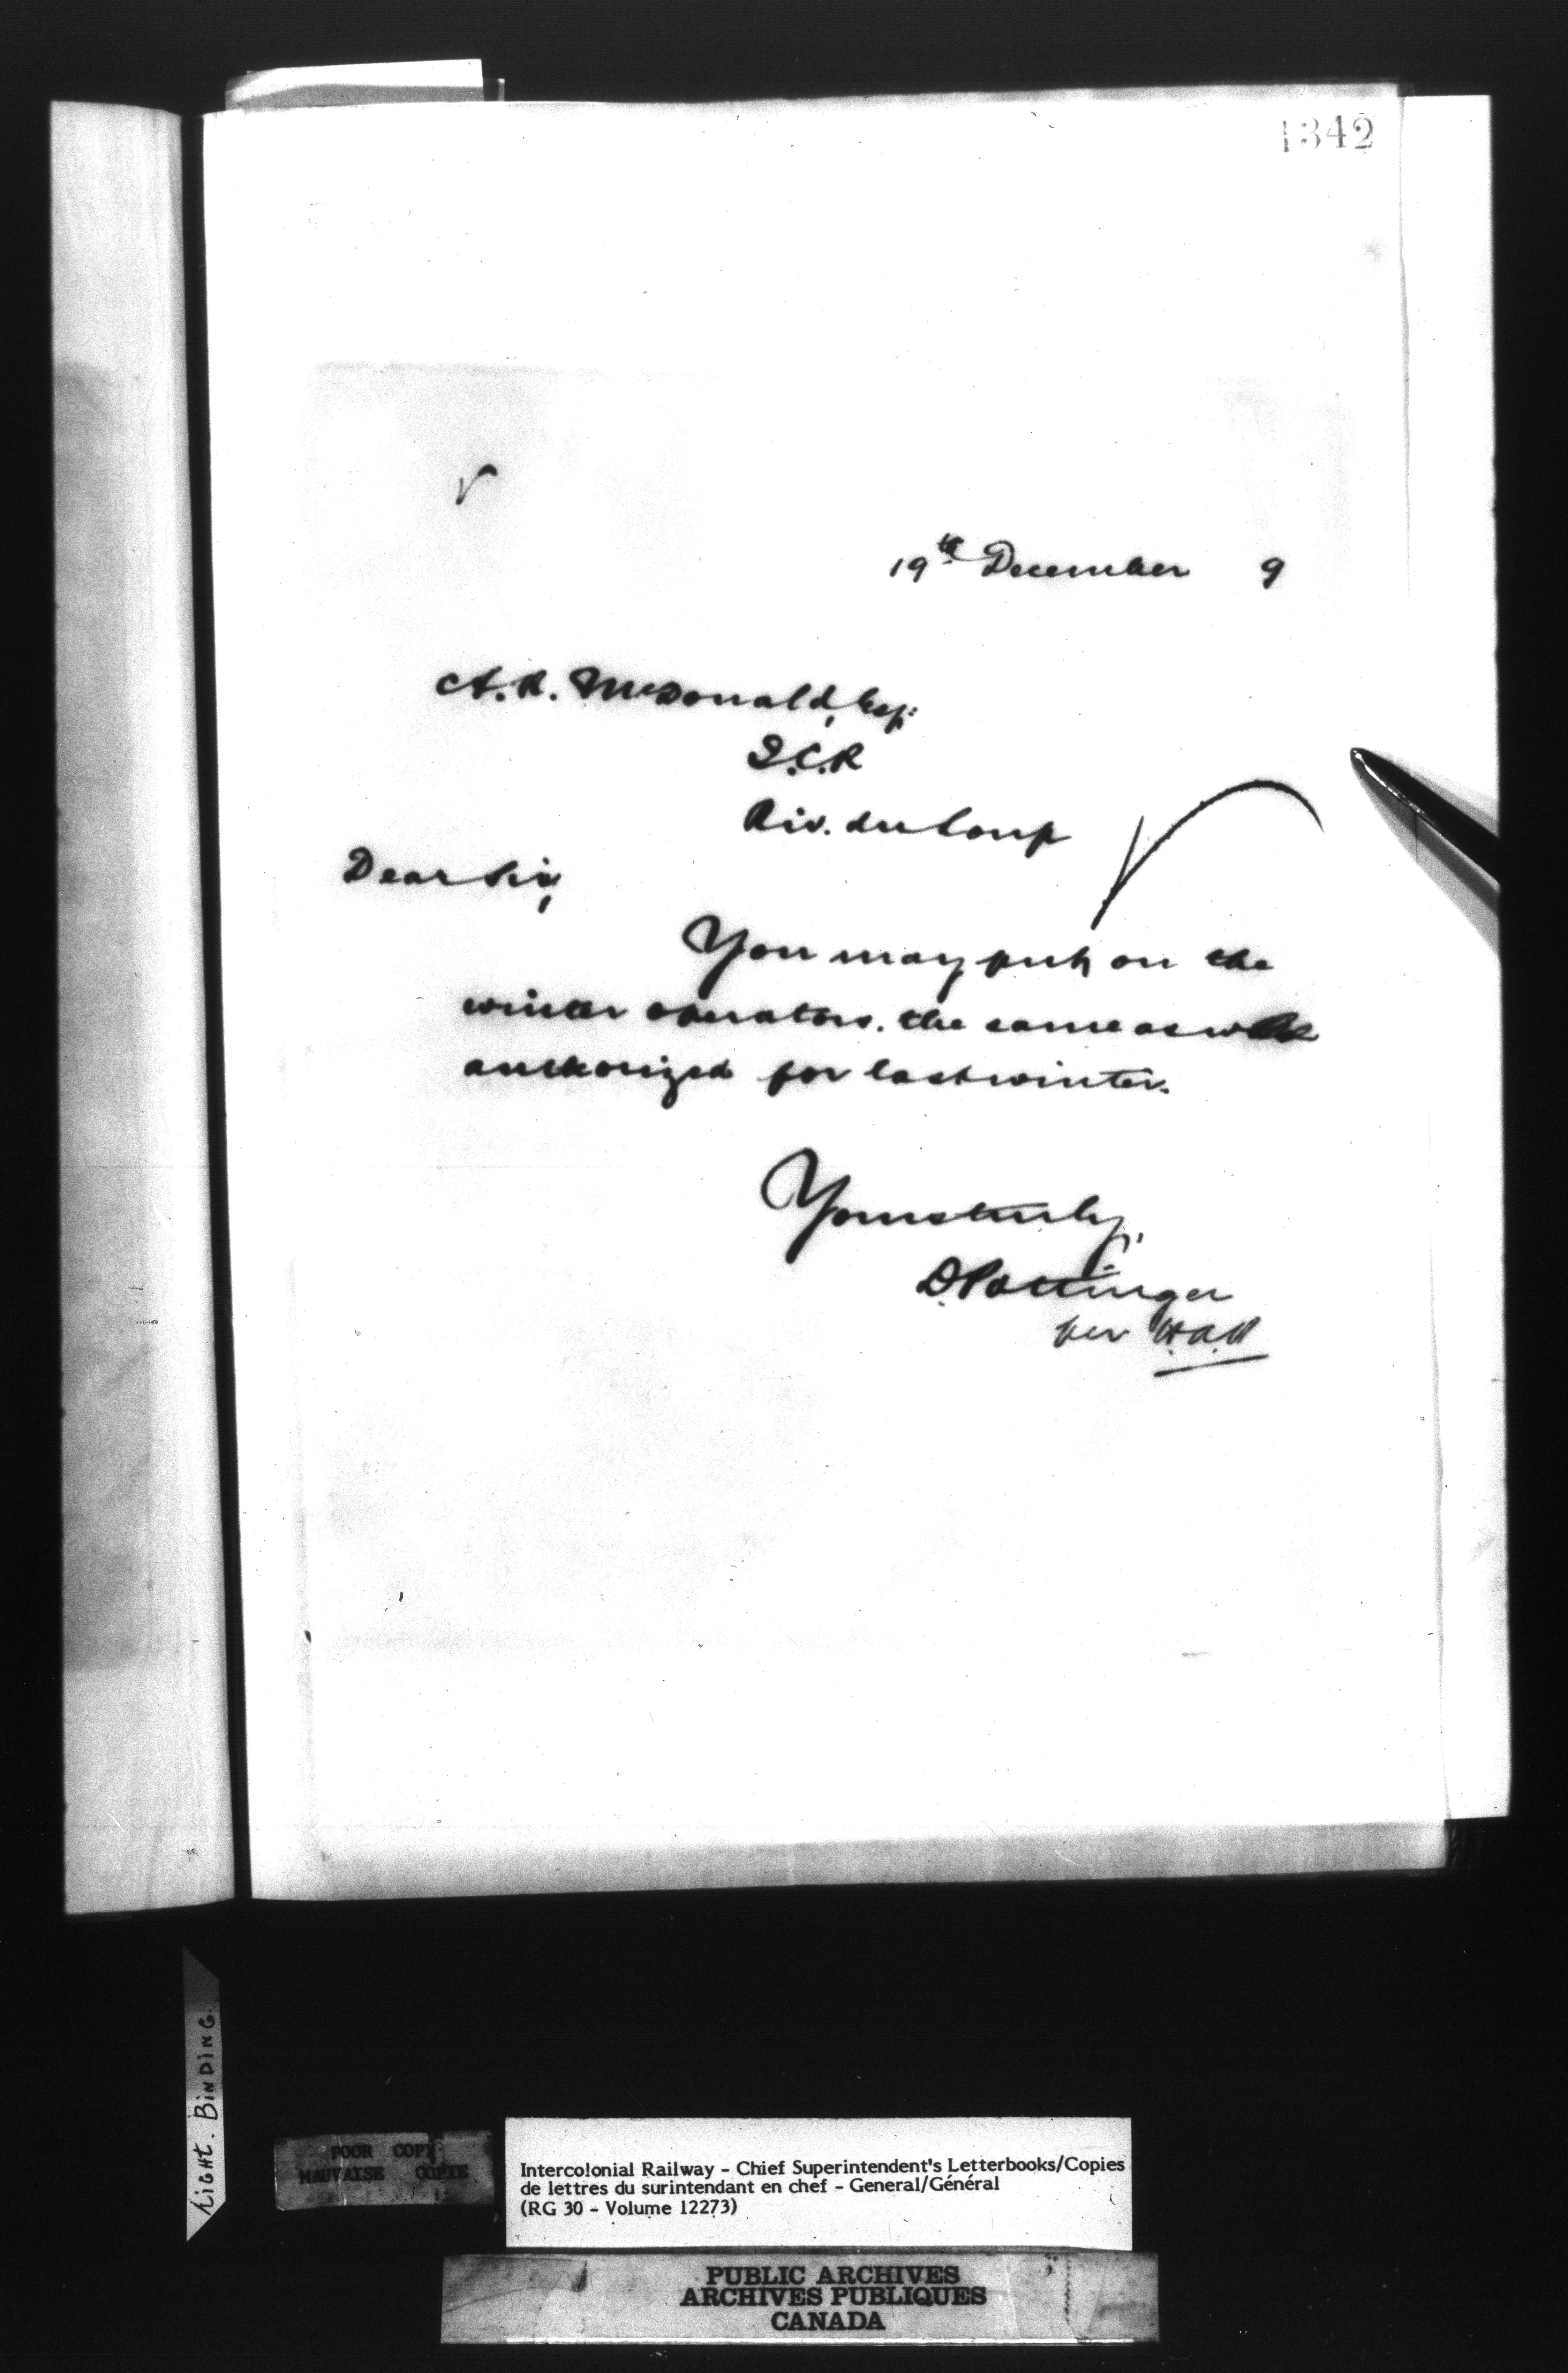 1342
19th December 9
A. R. McDonald, Esq:
I.C.R
Riv. du Loup
Dear Sir,
You may put on the
winter operators. the same as was
authorized for last winter.
Yours truly,
D. Pottinger
per
TIGHT. BINDING.
POOR COPY
MAUVAISE COPIE
Intercolonial Railway - Chief Superintendent's Letterbooks/Copies
de lettres du surintendant en chef - General/Général
(RG 30 - Volume 12273)
PUBLIC ARCHIVES
ARCHIVES PUBLIQUES
CANADA